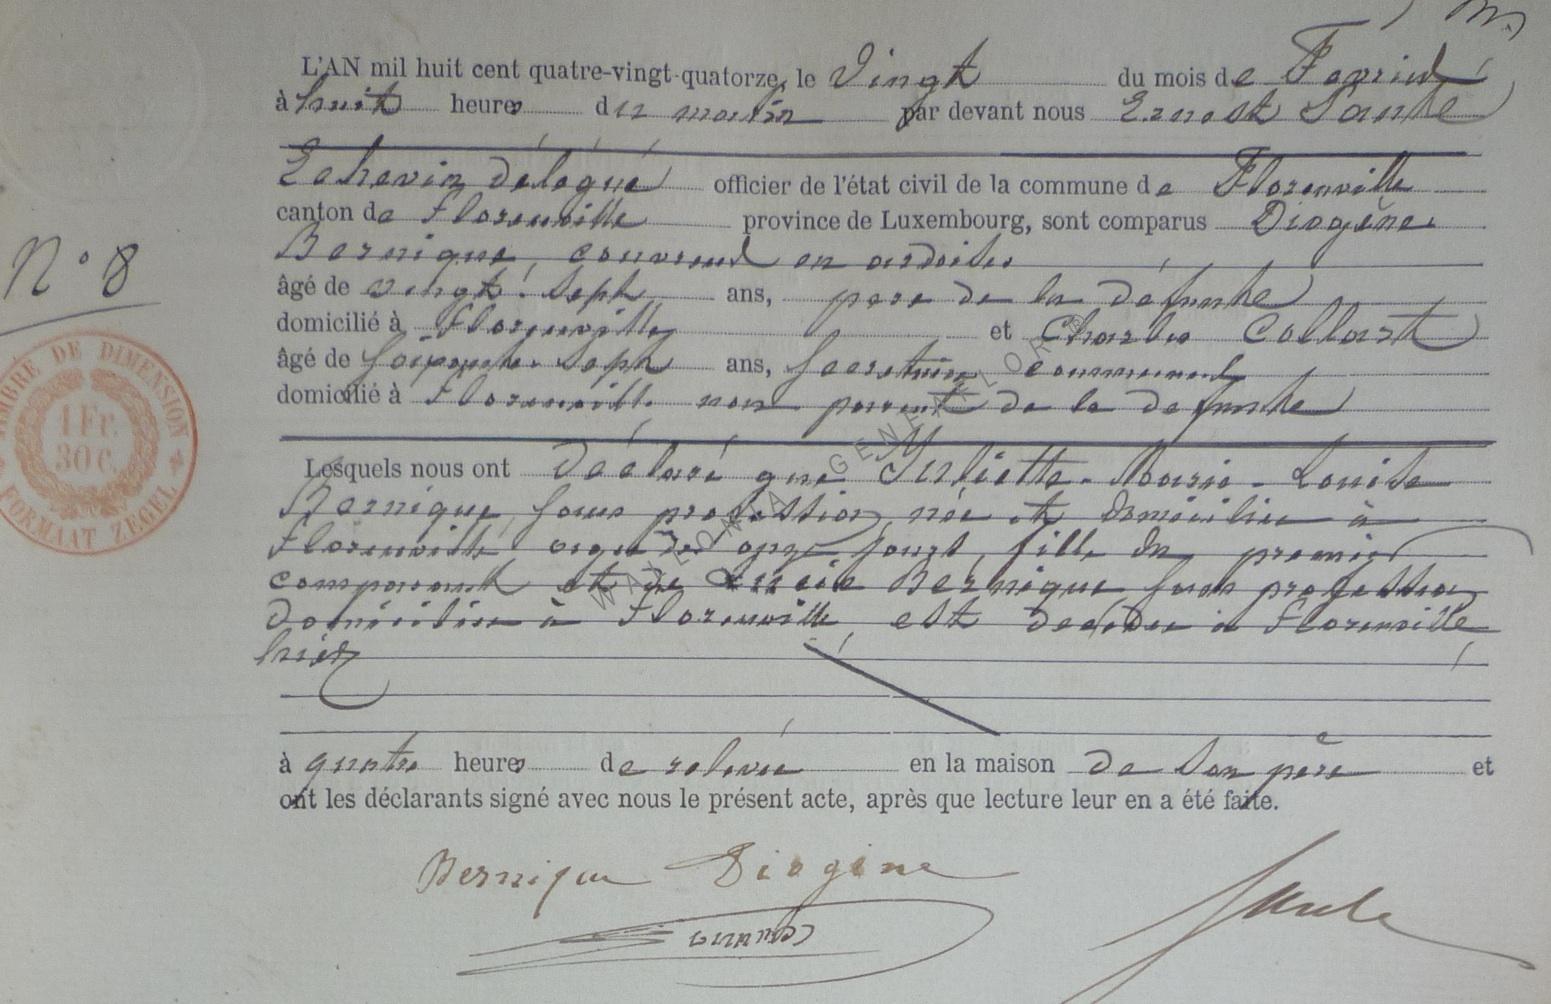 L'AN mil huit cent quatre-vingt-quatorze, le Vingt du mois de Fevrier
à huit heures du matin par devant nous Ernest
Echevin délégué officier de l'état civil de la commune de Florenville
canton de Florenville province de Luxembourg, sont comparus Diogène
Bernique, couvreur en ardoises
N° 8
âgé de vingt-sept ans, père de la défunte
domicilié à Florenville et Charles Collart
âgé de soixante-sept ans, secrétaire communal
domicilié à Florenville non parent de la défunte
TIMBRE DE DIMENSION
1 Fr.
30 C.
FORMAAT ZEGEL
Lesquels nous ont déclaré que Juliette-Marie-Louise
Bernique, sans profession, née et domiciliée à
Florenville agée de onze jours, fille du premier
comparant et de Lucie Bernique sans profession
domiciliée à Florenville, est décédée à Florenville
hier
à quatre heures de relevée en la maison de son père et
ont les déclarants signé avec nous le présent acte, après que lecture leur en a été faite.
Bernique Diogène